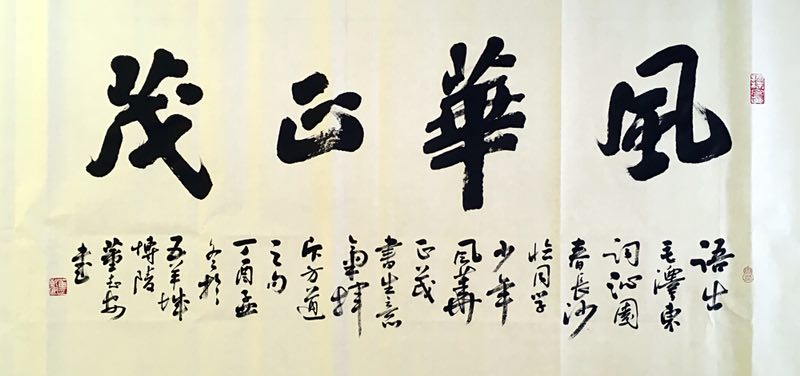 風華正茂
语出
毛澤東
词沁園
春長沙
恰同学
少年
風華
正茂
書生意
氣揮
斥方遒
之句
丁酉孟
冬於
五羊城
博陵
董安
書